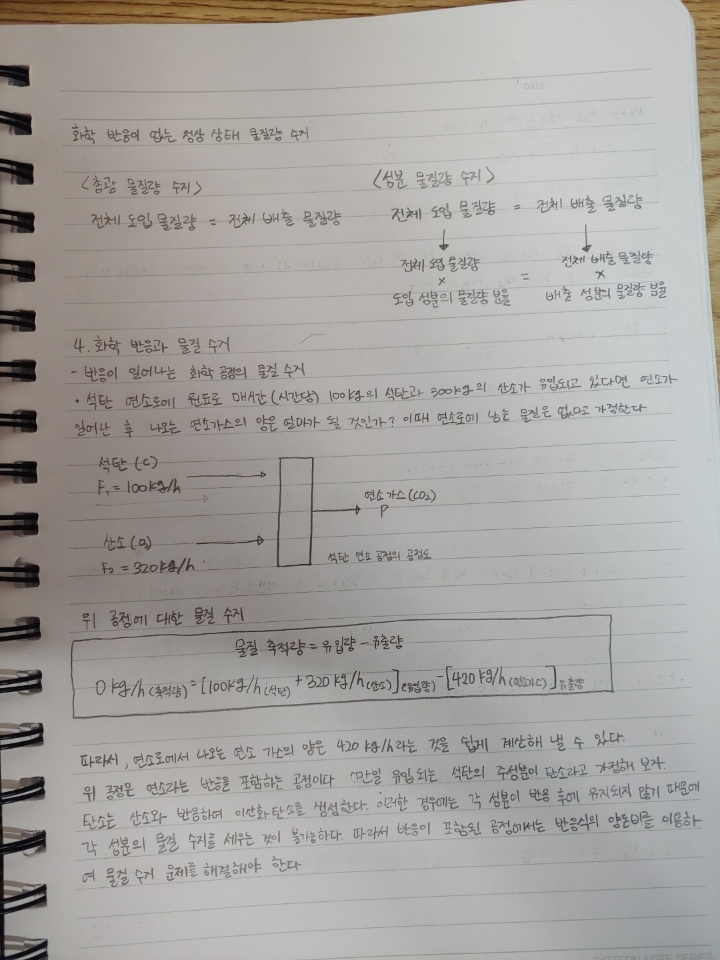 DATE
화학 반응이 없는 정상 상태 물질량 수지
<총괄 물질량 수지>
전체 도입 물질량 = 전체 배출 물질량
<성분 물질량 수지>
전체 도입 물질량 = 전체 배출 물질량
전체 도입 물질량 × 도입 성분의 물질량 분율 = 전체 배출 물질량 × 배출 성분의 물질량 분율
4. 화학 반응과 물질 수지
- 반응이 일어나는 화학 공정의 물질 수지
• 석탄 연소로에 원료로 매시간(시간당) 100kg의 석탄과 300kg의 산소가 유입되고 있다면 연소가
일어난 후 나오는 연소가스의 양은 얼마가 될 것인가? 이때 연소로에 남는 물질은 없다고 가정한다
석탄(C)
F₁ = 100kg/h
산소(O₂)
F₂ = 320kg/h
연소가스(CO₂)
P
석탄 연소 공정의 공정도
위 공정에 대한 물질 수지
물질 축적량 = 유입량 - 유출량
0kg/h(축적량) = [100kg/h(석탄) + 320kg/h(산소)](유입량) - [420kg/h(연소가스)]유출량
따라서, 연소로에서 나오는 연소 가스의 양은 420kg/h라는 것을 쉽게 계산해 낼 수 있다.
위 공정은 연소라는 반응을 포함하는 공정이다. 만일 유입되는 석탄의 주성분이 탄소라고 가정해 보자.
탄소는 산소와 반응하여 이산화탄소를 생성한다. 이러한 경우에는 각 성분이 반응 후에 유지되지 않기 때문에
각 성분의 물질 수지를 세우는 것이 불가능하다. 따라서 반응이 포함된 공정에서는 반응식의 양론비를 이용하
여 물질 수지 문제를 해결해야 한다